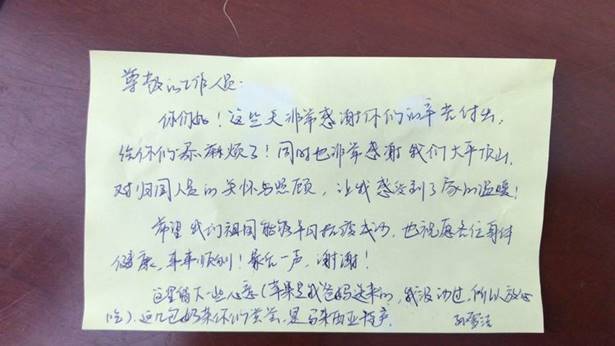 尊敬的工作人员:
你们好！这些天非常感谢你们的辛苦付出,
给你们添麻烦了！同时也非常感谢我们大平顶山,
对归国人员的关怀与照顾，让我感受到了家的温暖！
希望我们祖国能够早日抗疫成功，也祝愿各位身体
健康，事事顺利！最后一声，谢谢！
这里留下一些心意(苹果是我爸妈送来的，我没动过，所以放心
吃)，这几包奶茶你们尝尝，是马来西亚特产.